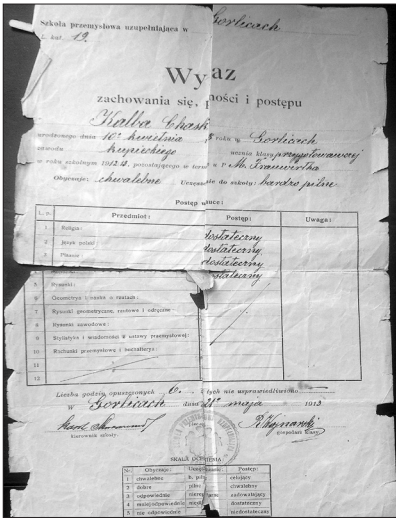 Szkoła przemysłowa uzupełniająca w Gorlicach
L. kat. 19.
Wy az
zachowania się, pilności i postępu
Kalba Chask
urodzonego dnia 10 kwietnia 8 roku w Gorlicach
zawodu kupieckiego ucznia klasy przygotowawczej
w roku szkolnym 1912/13, pozostającego w term u P. M.
Obyczaje: chwalebne Uczęszcz do szkoły: bardzo pilne
Postęp w uce:
L. p. Przedmiot: Postęp: Uwaga:
1 Religia: dostateczny
2 Język polski dostateczny
3 Pisanie dostateczny
dostateczny
5 Rysunki:
6 Geometrya i nauka o rzutach:
7 Rysunki geometryczne, rzutowe i odręczne:
8 Rysunki zawodowe:
9 Stylistyka i wiadomości z ustawy przemysłowej:
10 Rachunki przemysłowe i buchalterya:
11
12
Liczba godzin opuszczonych 6. Z tych nie usprawiedliwiono
W Gorlicach dnia 21 maja 1913
kierownik szkoły gospodarz klasy
SKALA OCENIENIA
Nr. Obyczaje: Uczęszczanie: Postęp:
1 chwalebne b. pilne celujący
2 dobre pilne chwalebny
3 odpowiednie zadowalający
4 mniej odpowiednie dostateczny
5 nie odpowiednie niedostateczny